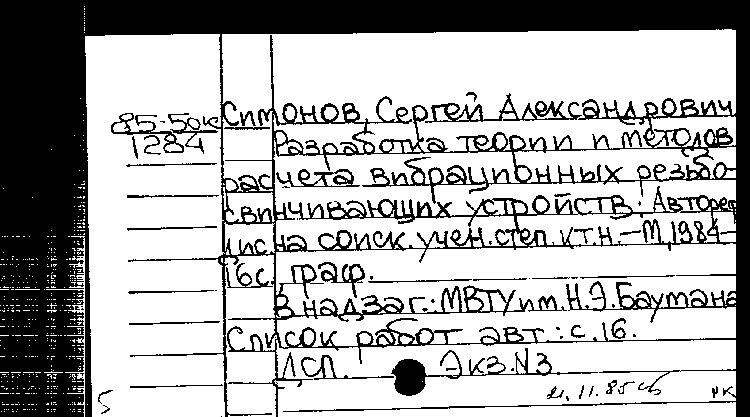 85-50к Симонов, Сергей Александрович
1284 Разработка теории и методов
расчета вибрационных резьбо-
свинчивающих устройств: Автореф
дис. на соиск. учен. степ. к.т.н. – М., 1984 –
16с., граф.
В надзаг.: МВТУ им. Н.Э. Баумана
Список работ авт.: с. 16.
ДСП. Экз. N3.
21.11.85
5